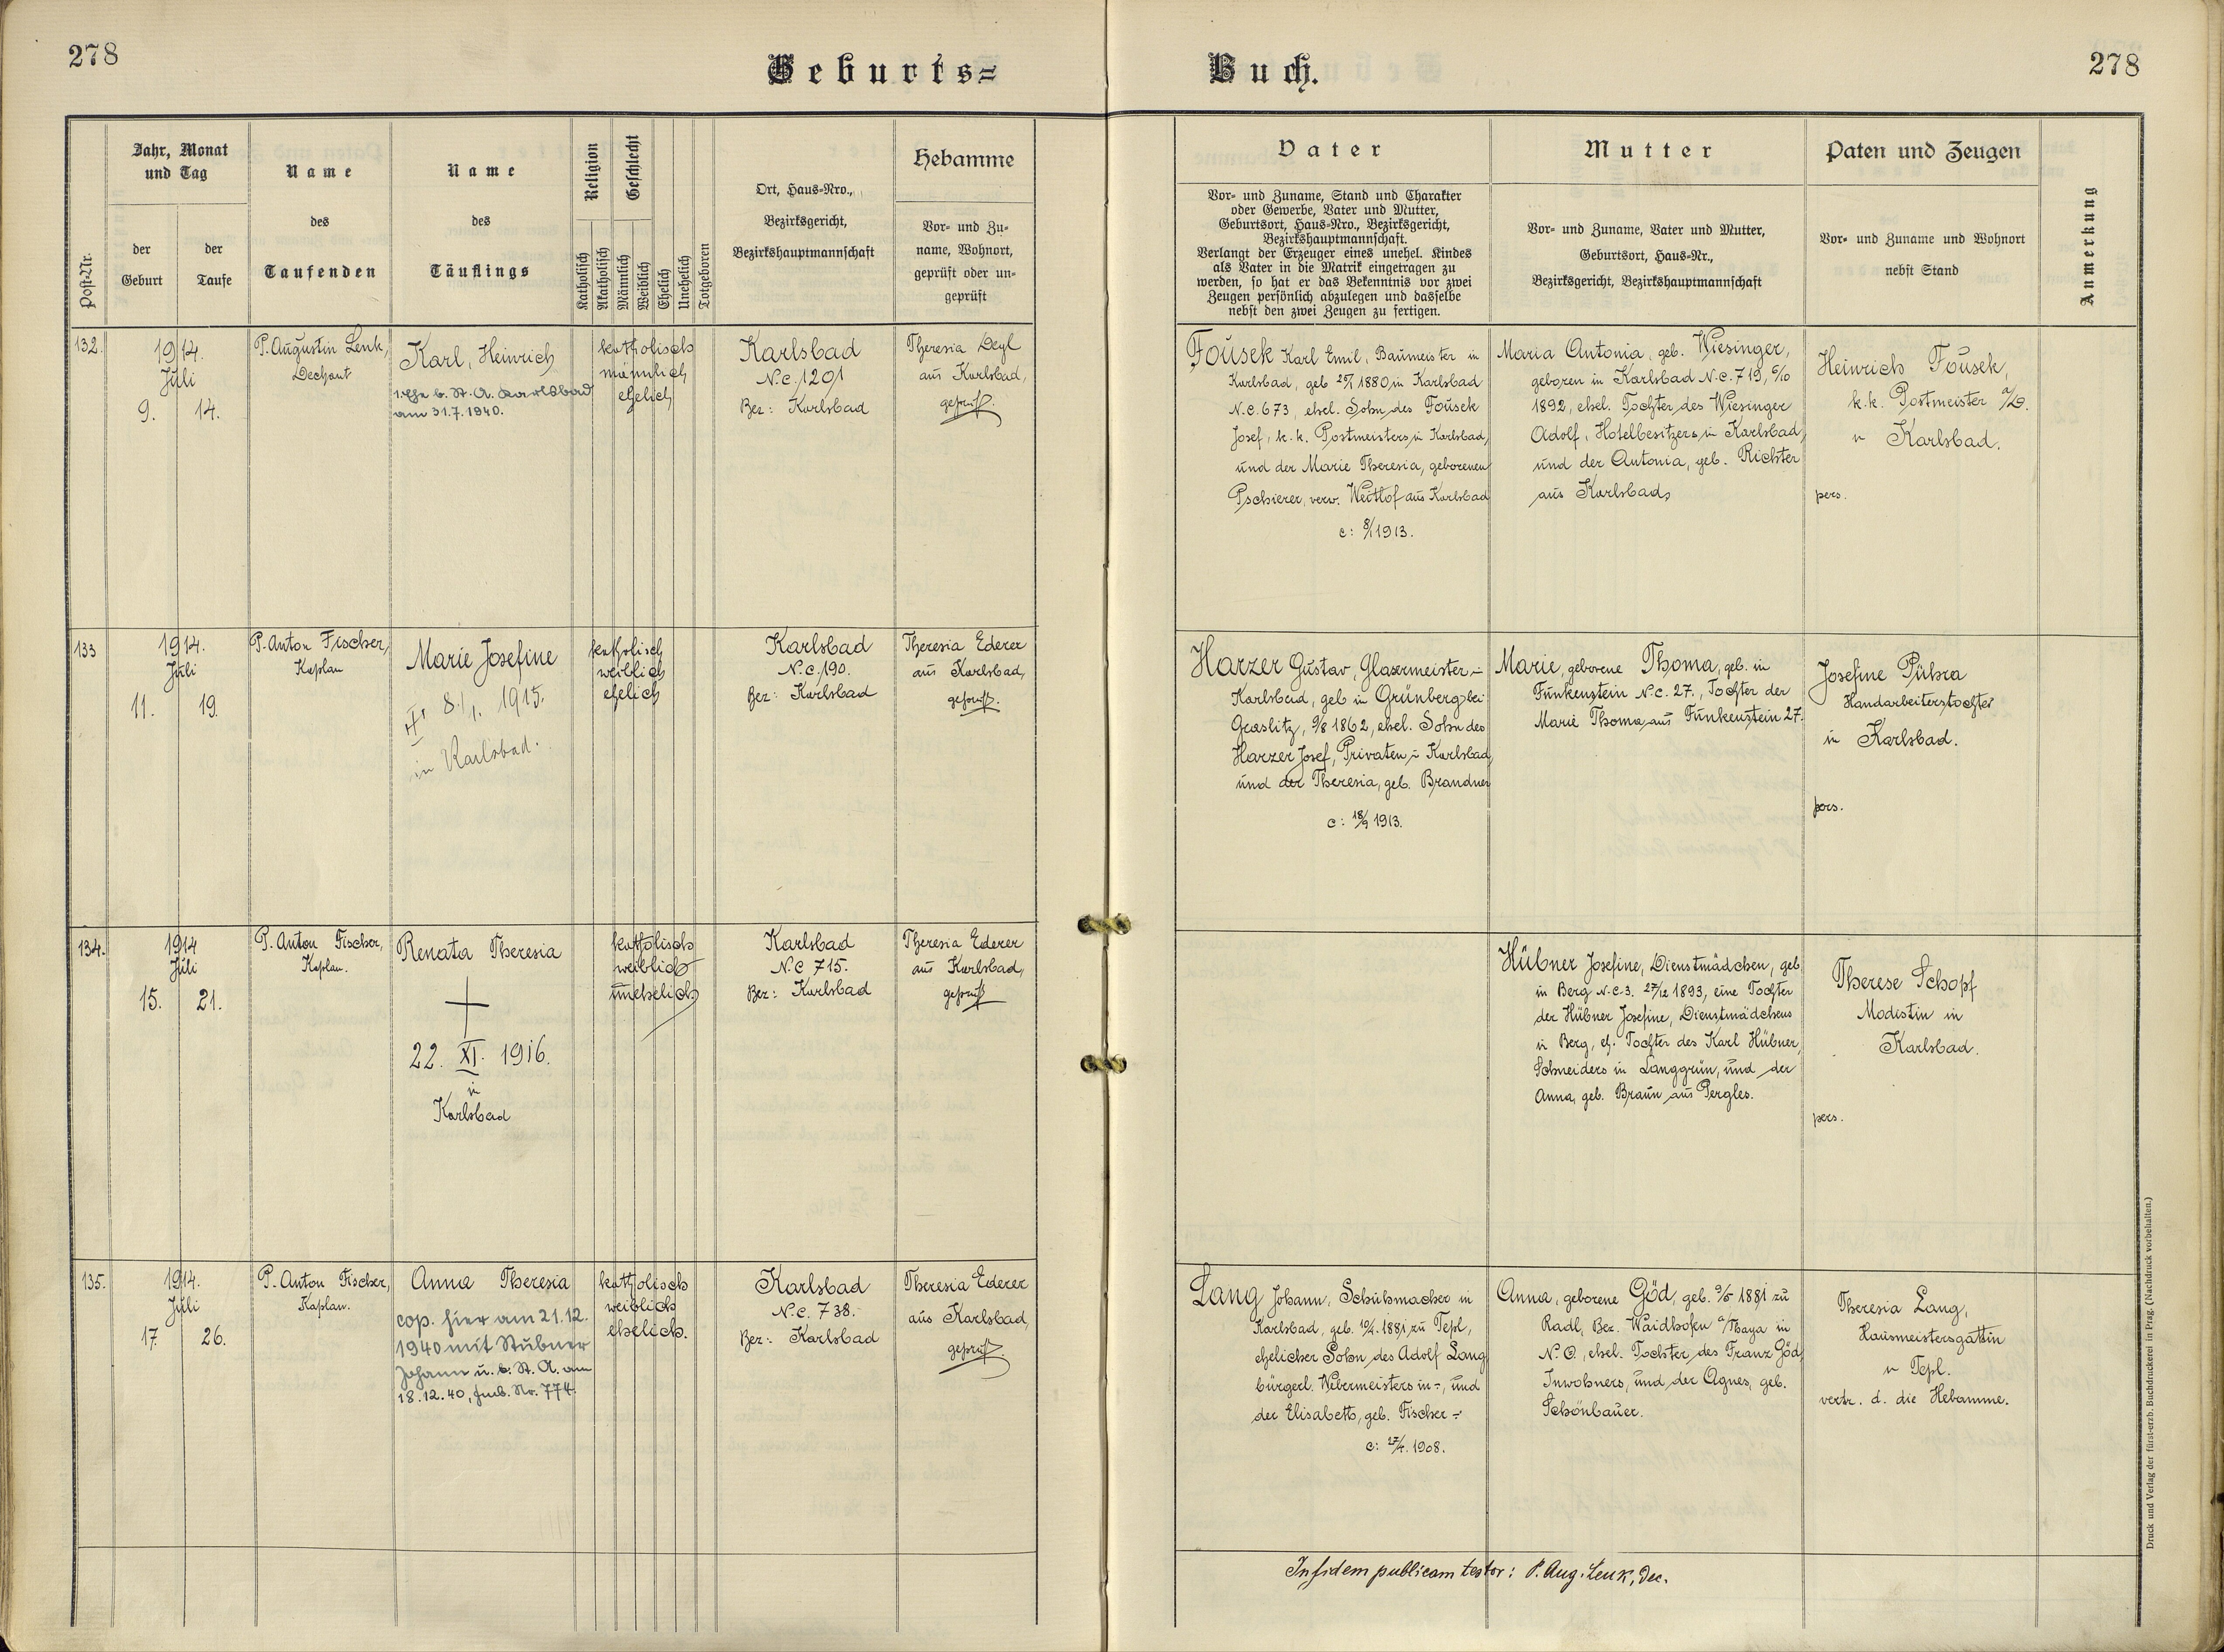 278
Geburts=
Buch.
278
Post-Nr.
Jahr, Monat
und Tag
der
Geburt
der
Taufe
Name
des
Taufenden
Name
des
Täuflings
Religion
Katholisch
Akatholisch
Geschlecht
Männlich
Weiblich
Ehelich
Unehelich
Totgeboren
Ort, Haus-Nro.,
Bezirksgericht,
Bezirkshauptmannschaft
Hebamme
Vor- und Zu-
name, Wohnort,
geprüft oder un-
geprüft
Vater
Vor- und Zuname, Stand und Charakter
oder Gewerbe, Vater und Mutter,
Geburtsort, Haus-Nro., Bezirksgericht,
Bezirkshauptmannschaft.
Verlangt der Erzeuger eines unehel. Kindes
als Vater in die Matrik eingetragen zu
werden, so hat er das Bekenntnis vor zwei
Zeugen persönlich abzulegen und dasselbe
nebst den zwei Zeugen zu fertigen.
Mutter
Vor- und Zuname, Vater und Mutter,
Geburtsort, Haus-Nr.,
Bezirksgericht, Bezirkshauptmannschaft
Paten und Zeugen
Vor- und Zuname und Wohnort
nebst Stand
Anmerkung
132.
1914.
Juli
9. 14.
P. Augustin Lenk,
Dechant
Karl, Heinrich
1. Ehe b. St. A. Karlsbad
am 31.7.1940.
katholisch
männlich
ehelich
Karlsbad
N.C. 1201
Bez: Karlsbad
Theresia Deyl
aus Karlsbad,
geprüft.
Fousek Karl Emil, Baumeister in
Karlsbad, geb 1880 in Karlsbad
N.C. 673, ehel. Sohn des Fousek
Josef, k. k. Postmeisters in Karlsbad,
und der Marie Theresia, geborenen
Pschierer, verw. Weithof aus Karlsbad
c: 8/1 1913.
Maria Antonia, geb. Wiesinger,
geboren in Karlsbad N.C. 719, 6/10
1892, ehel. Tochter des Wiesinger
Adolf, Hotelbesitzers in Karlsbad,
und der Antonia, geb. Richter
aus Karlsbad
Heinrich Fousek,
k.k. Postmeister a/D.
in Karlsbad.
pers.
133
1914.
Juli
11. 19.
P. Anton Fischer,
Kaplan
Marie Josefine
8./1. 1915.
in Karlsbad.
katholisch
weiblich
ehelich
Karlsbad
N.C. 190.
Bez: Karlsbad
Theresia Ederer
aus Karlsbad,
geprüft.
Harzer Gustav, Glasermeister in
Karlsbad, geb in Grünberg bei
Graslitz, 9/8 1862, ehel. Sohn des
Harzer Josef, Privaten in Karlsbad,
und der Theresia, geb. Brandner
c: 18/9 1913.
Marie, geborene Thoma, geb. in
Funkenstein N.C. 27., Tochter der
Marie Thoma aus Funkenstein 27.
Josefine Pühra
Handarbeiterstochter
in Karlsbad.
pers.
134.
1914
Juli
15. 21.
P. Anton Fischer,
Kaplan.
Renata Theresia
22. XI. 1916.
in
Karlsbad
katholisch
weiblich
unehelich
Karlsbad
N.C 715.
Bez: Karlsbad
Theresia Ederer
aus Karlsbad,
geprüft
Hübner Josefine, Dienstmädchen, geb
in Berg N.C. 3. 27/12 1893, eine Tochter
der Hübner Josefine, Dienstmädchens
in Berg, eh. Tochter des Karl Hübner,
Schneiders in Langgrün, und der
Anna, geb. Braun aus Pergles.
Therese Schopf
Modistin in
Karlsbad.
pers.
135.
1914.
Juli
17. 26.
P. Anton Fischer,
Kaplan.
Anna Theresia
cop. hier am 21.12.
1940 mit Stübner
Johann u. b. St. A. am
18.12.40, Nr. 774.
katholisch
weiblich
ehelich.
Karlsbad
N.C. 738.
Bez: Karlsbad
Theresia Ederer
aus Karlsbad,
geprüft.
Lang Johann, Schuhmacher in
Karlsbad, geb. 10/4. 1881 zu Tepl,
ehelicher Sohn des Adolf Lang
bürgerl. Webermeisters in -, und
der Elisabeth, geb. Fischer -
c: 27/4. 1908.
Anna, geborene Göd, geb. 9/5 1881 zu
Radl, Bez. Waidhofen a/Thaya in
N. Ö., ehel. Tochter des Franz Göd,
Inwohners, und der Agnes, geb.
Schönbauer.
Theresia Lang,
Hausmeistersgattin
in Tepl.
vertr. d. die Hebamme.
In fidem publicam testor: P. Aug. Lenk, Dec.
Druck und Verlag der fürst-erzb. Buchdruckerei in Prag. (Nachdruck vorbehalten.)